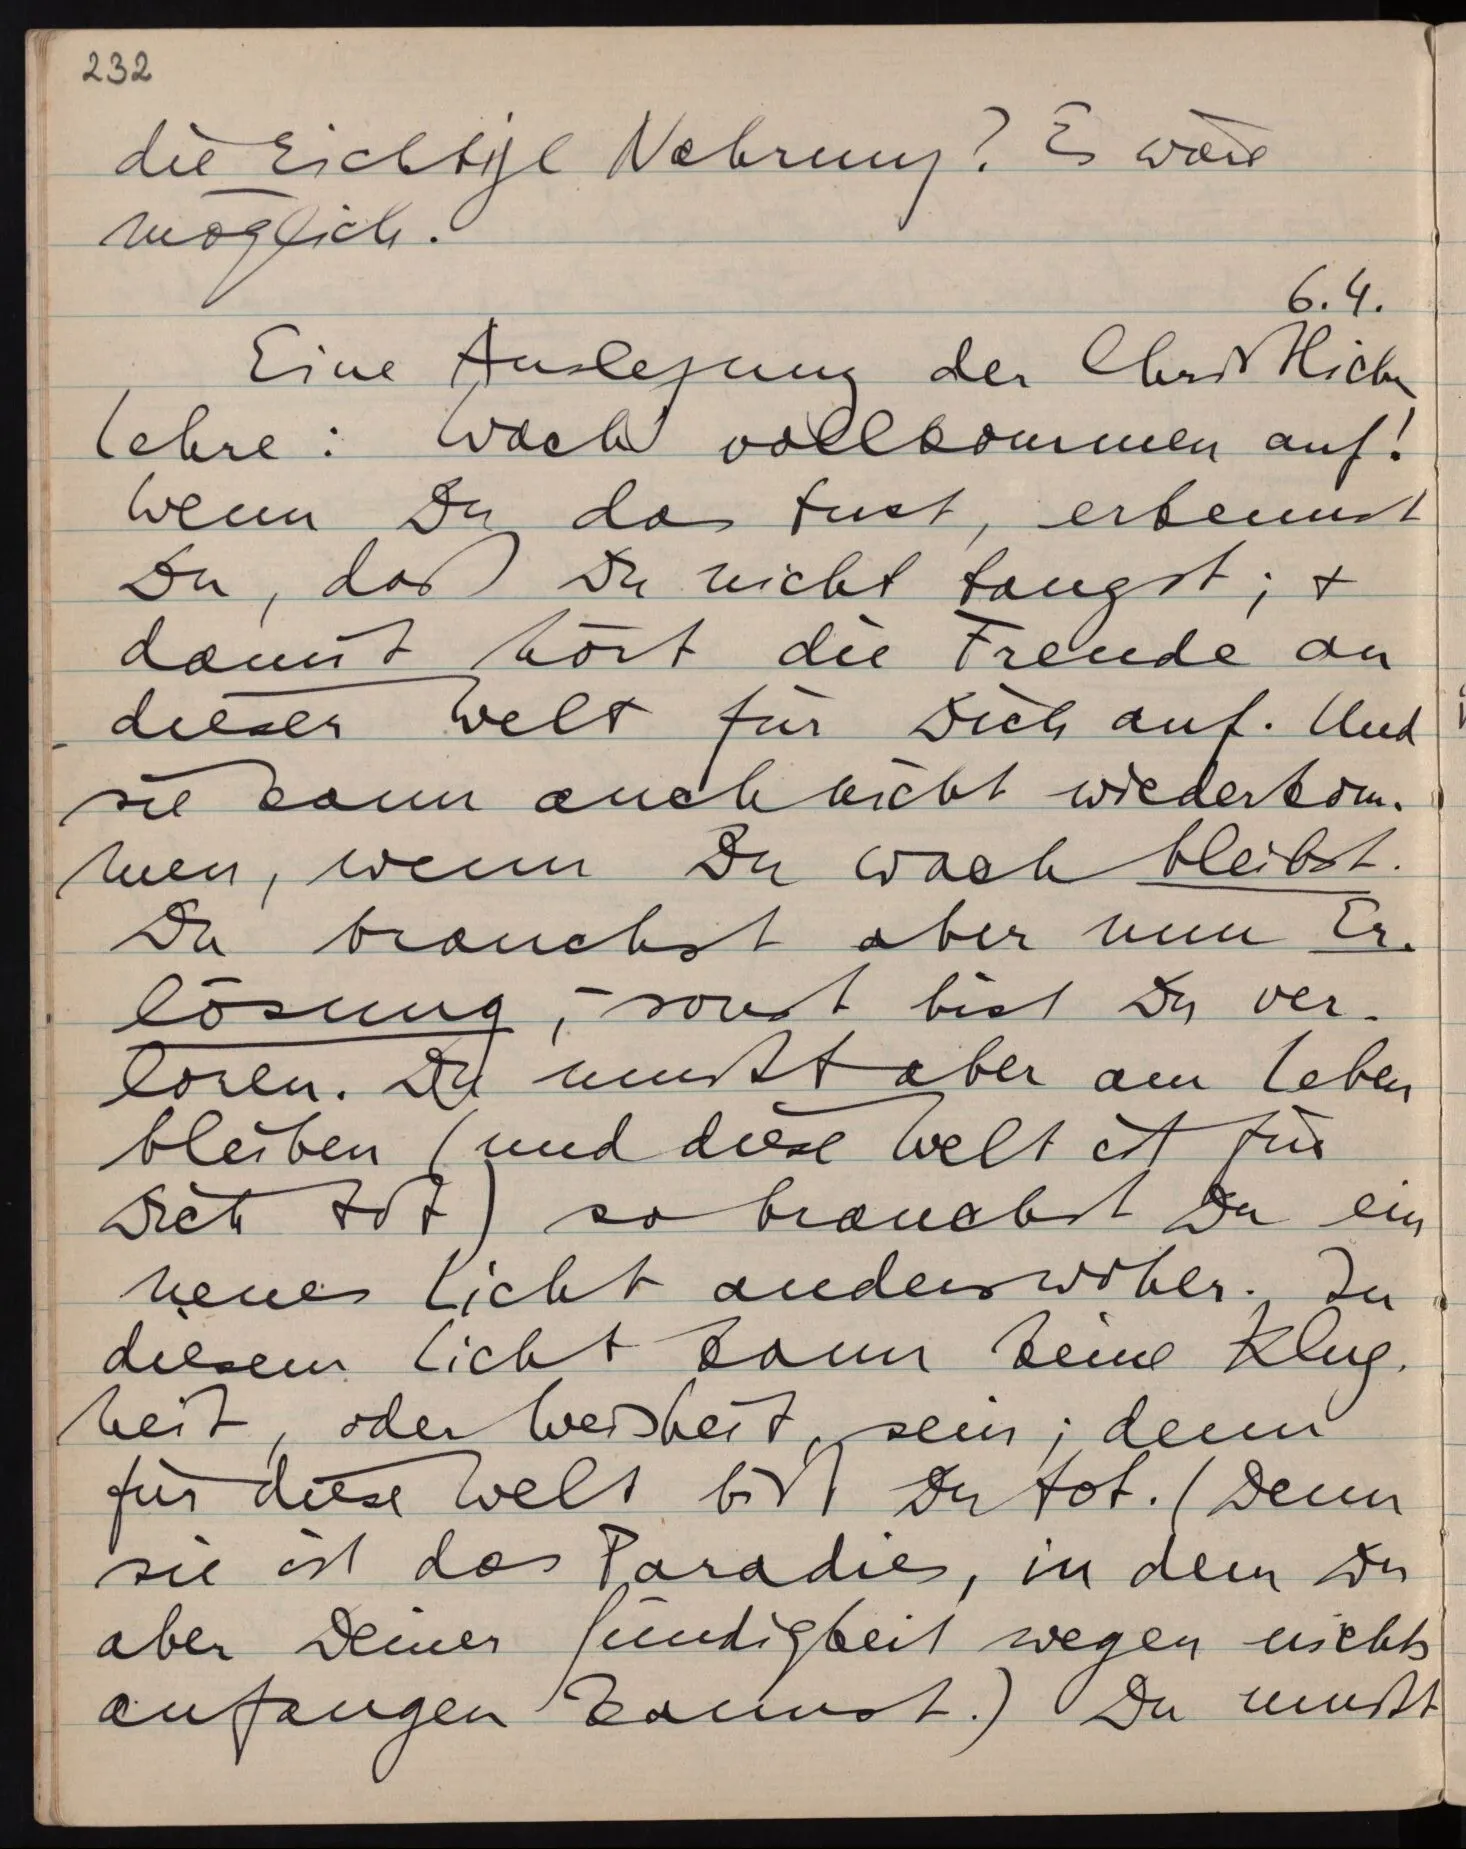 232
die richtige Nahrung? Es wäre
möglich.
6.4.
Eine Auslegung der Christlichen
Lehre: Wach vollkommen auf!
Wenn Du das tust, erkennst
Du, daß Du nicht taugst; +
damit hört die Freude an
dieser Welt für Dich auf. Und
sie kann auch nicht wiederkom-
men, wenn Du wach bleibst.
Du brauchst aber nun Er-
lösung, – sonst bist Du ver-
loren. Du mußt aber am Leben
bleiben (und diese Welt ist für
Dich tot) so brauchst Du ein
neues Licht anderswoher. In
diesem Licht kann keine Klug-
heit, oder Weisheit, sein; denn
für diese Welt bist Du tot. (Denn
sie ist das Paradies, in dem Du
aber Deiner Sündigkeit wegen nichts
anfangen kannst.) Du mußt